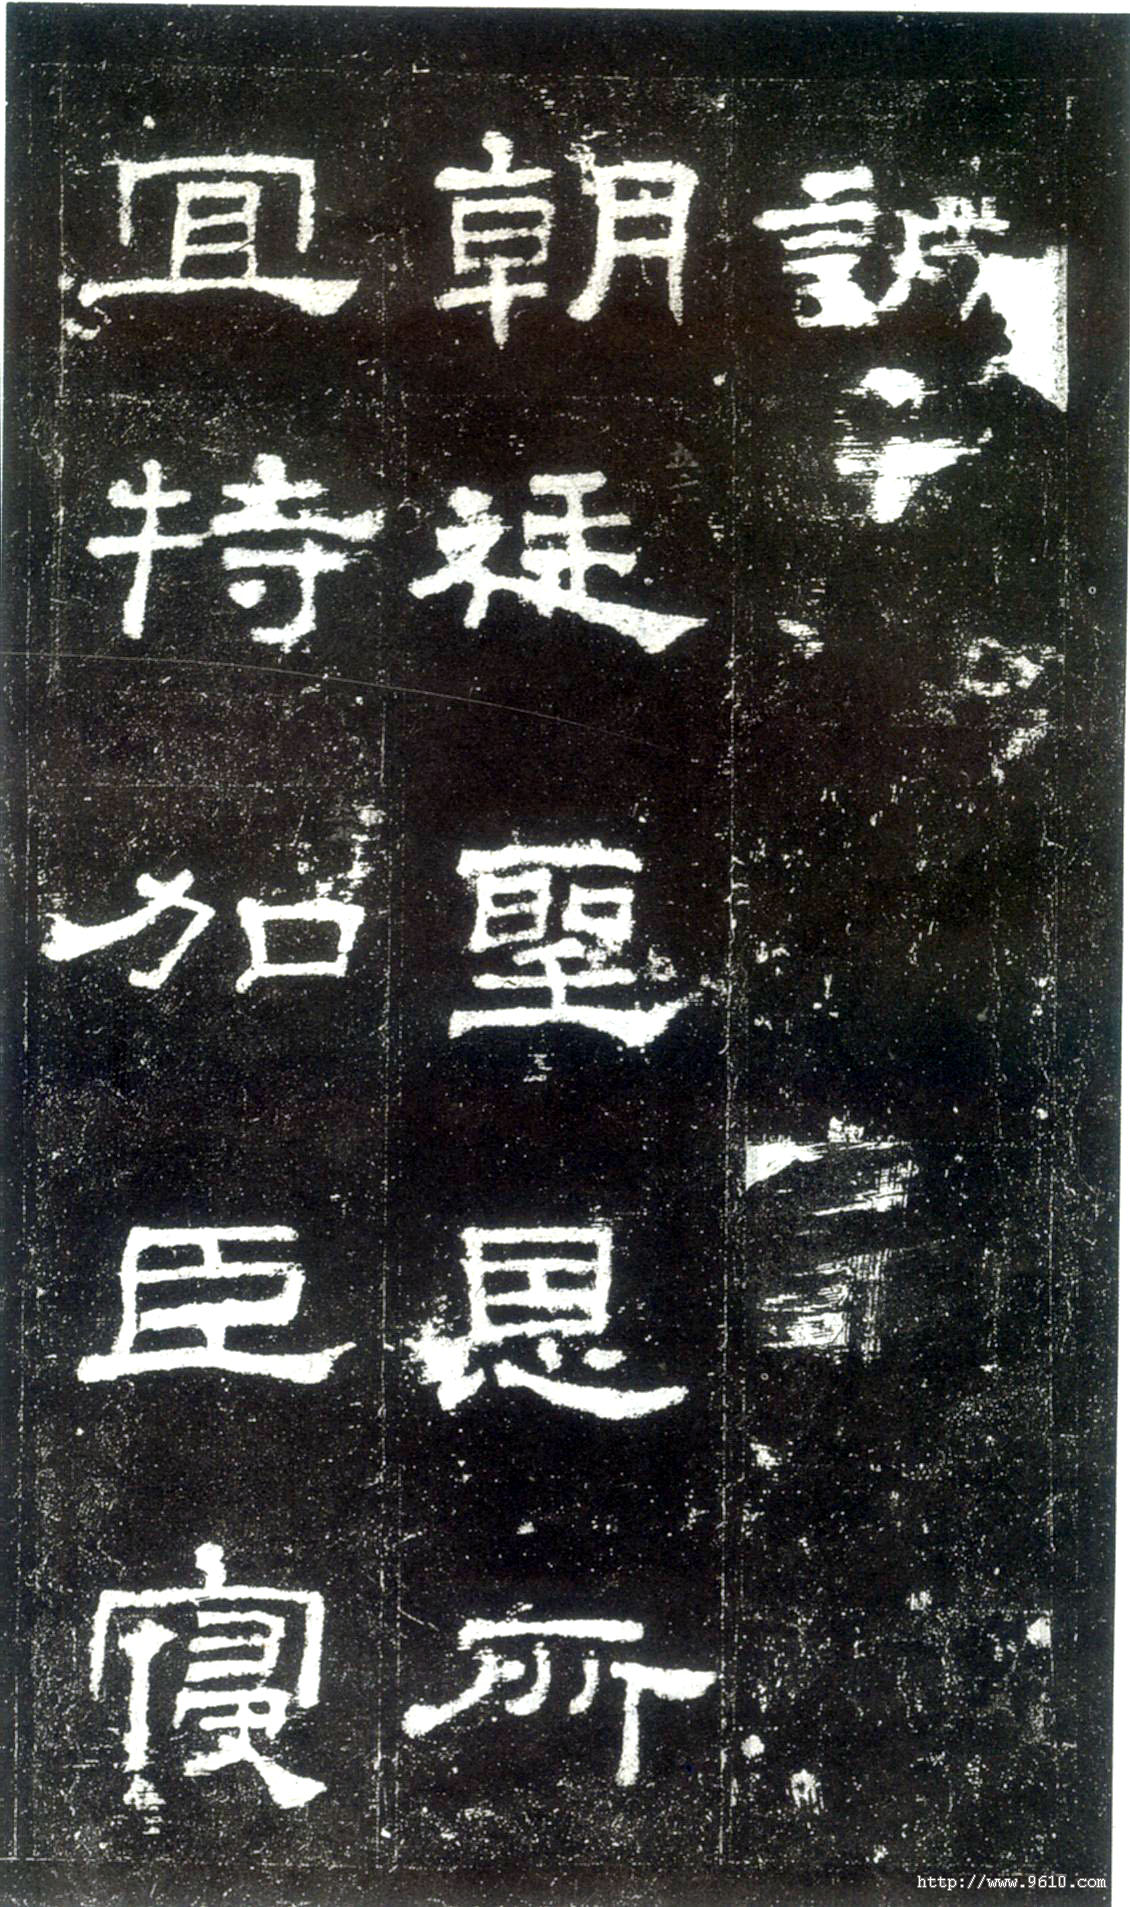 誠
朝廷聖恩所
宜特加臣寑
http://www.9610.com